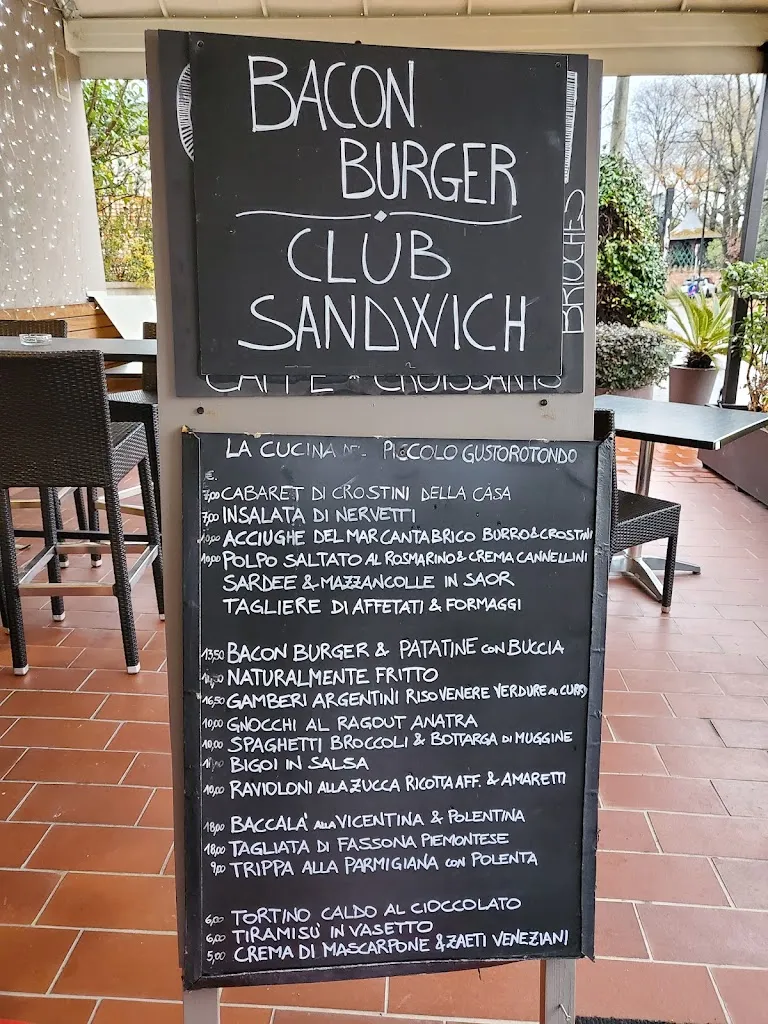 BACON
BURGER
CLUB
SANDWICH
BRIOCHES
CAFFE CROISSANTS
LA CUCINA DEL PICCOLO GUSTOROTONDO
€.
7,00 CABARET DI CROSTINI DELLA CASA
7,00 INSALATA DI NERVETTI
10,00 ACCIUGHE DEL MAR CANTABRICO BURRO & CROSTINI
10,00 POLPO SALTATO AL ROSMARINO & CREMA CANNELLINI
SARDEE & MAZZANCOLLE IN SAOR
TAGLIERE DI AFFETATI & FORMAGGI
13,50 BACON BURGER & PATATINE CON BUCCIA
NATURALMENTE FRITTO
16,50 GAMBERI ARGENTINI RISO VENERE VERDURE AL CURRY
10,00 GNOCCHI AL RAGOUT ANATRA
10,00 SPAGHETTI BROCCOLI & BOTTARGA DI MUGGINE
BIGOI IN SALSA
10,00 RAVIOLONI ALLA ZUCCA RICOTTA AFF. & AMARETTI
18,00 BACCALA' ALLA VICENTINA & POLENTINA
18,00 TAGLIATA DI FASSONA PIEMONTESE
9,00 TRIPPA ALLA PARMIGIANA CON POLENTA
6,00 TORTINO CALDO AL CIOCCOLATO
6,00 TIRAMISU' IN VASETTO
5,00 CREMA DI MASCARPONE & ZAETI VENEZIANI